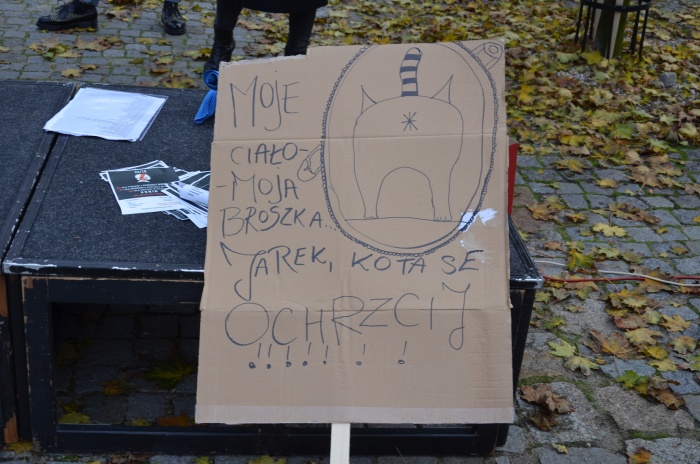 MOJE
CIAŁO-
-MOJA
BROSZKA...
JAREK, KOTA SE
OCHRZCIJ
!!!!!! ! !